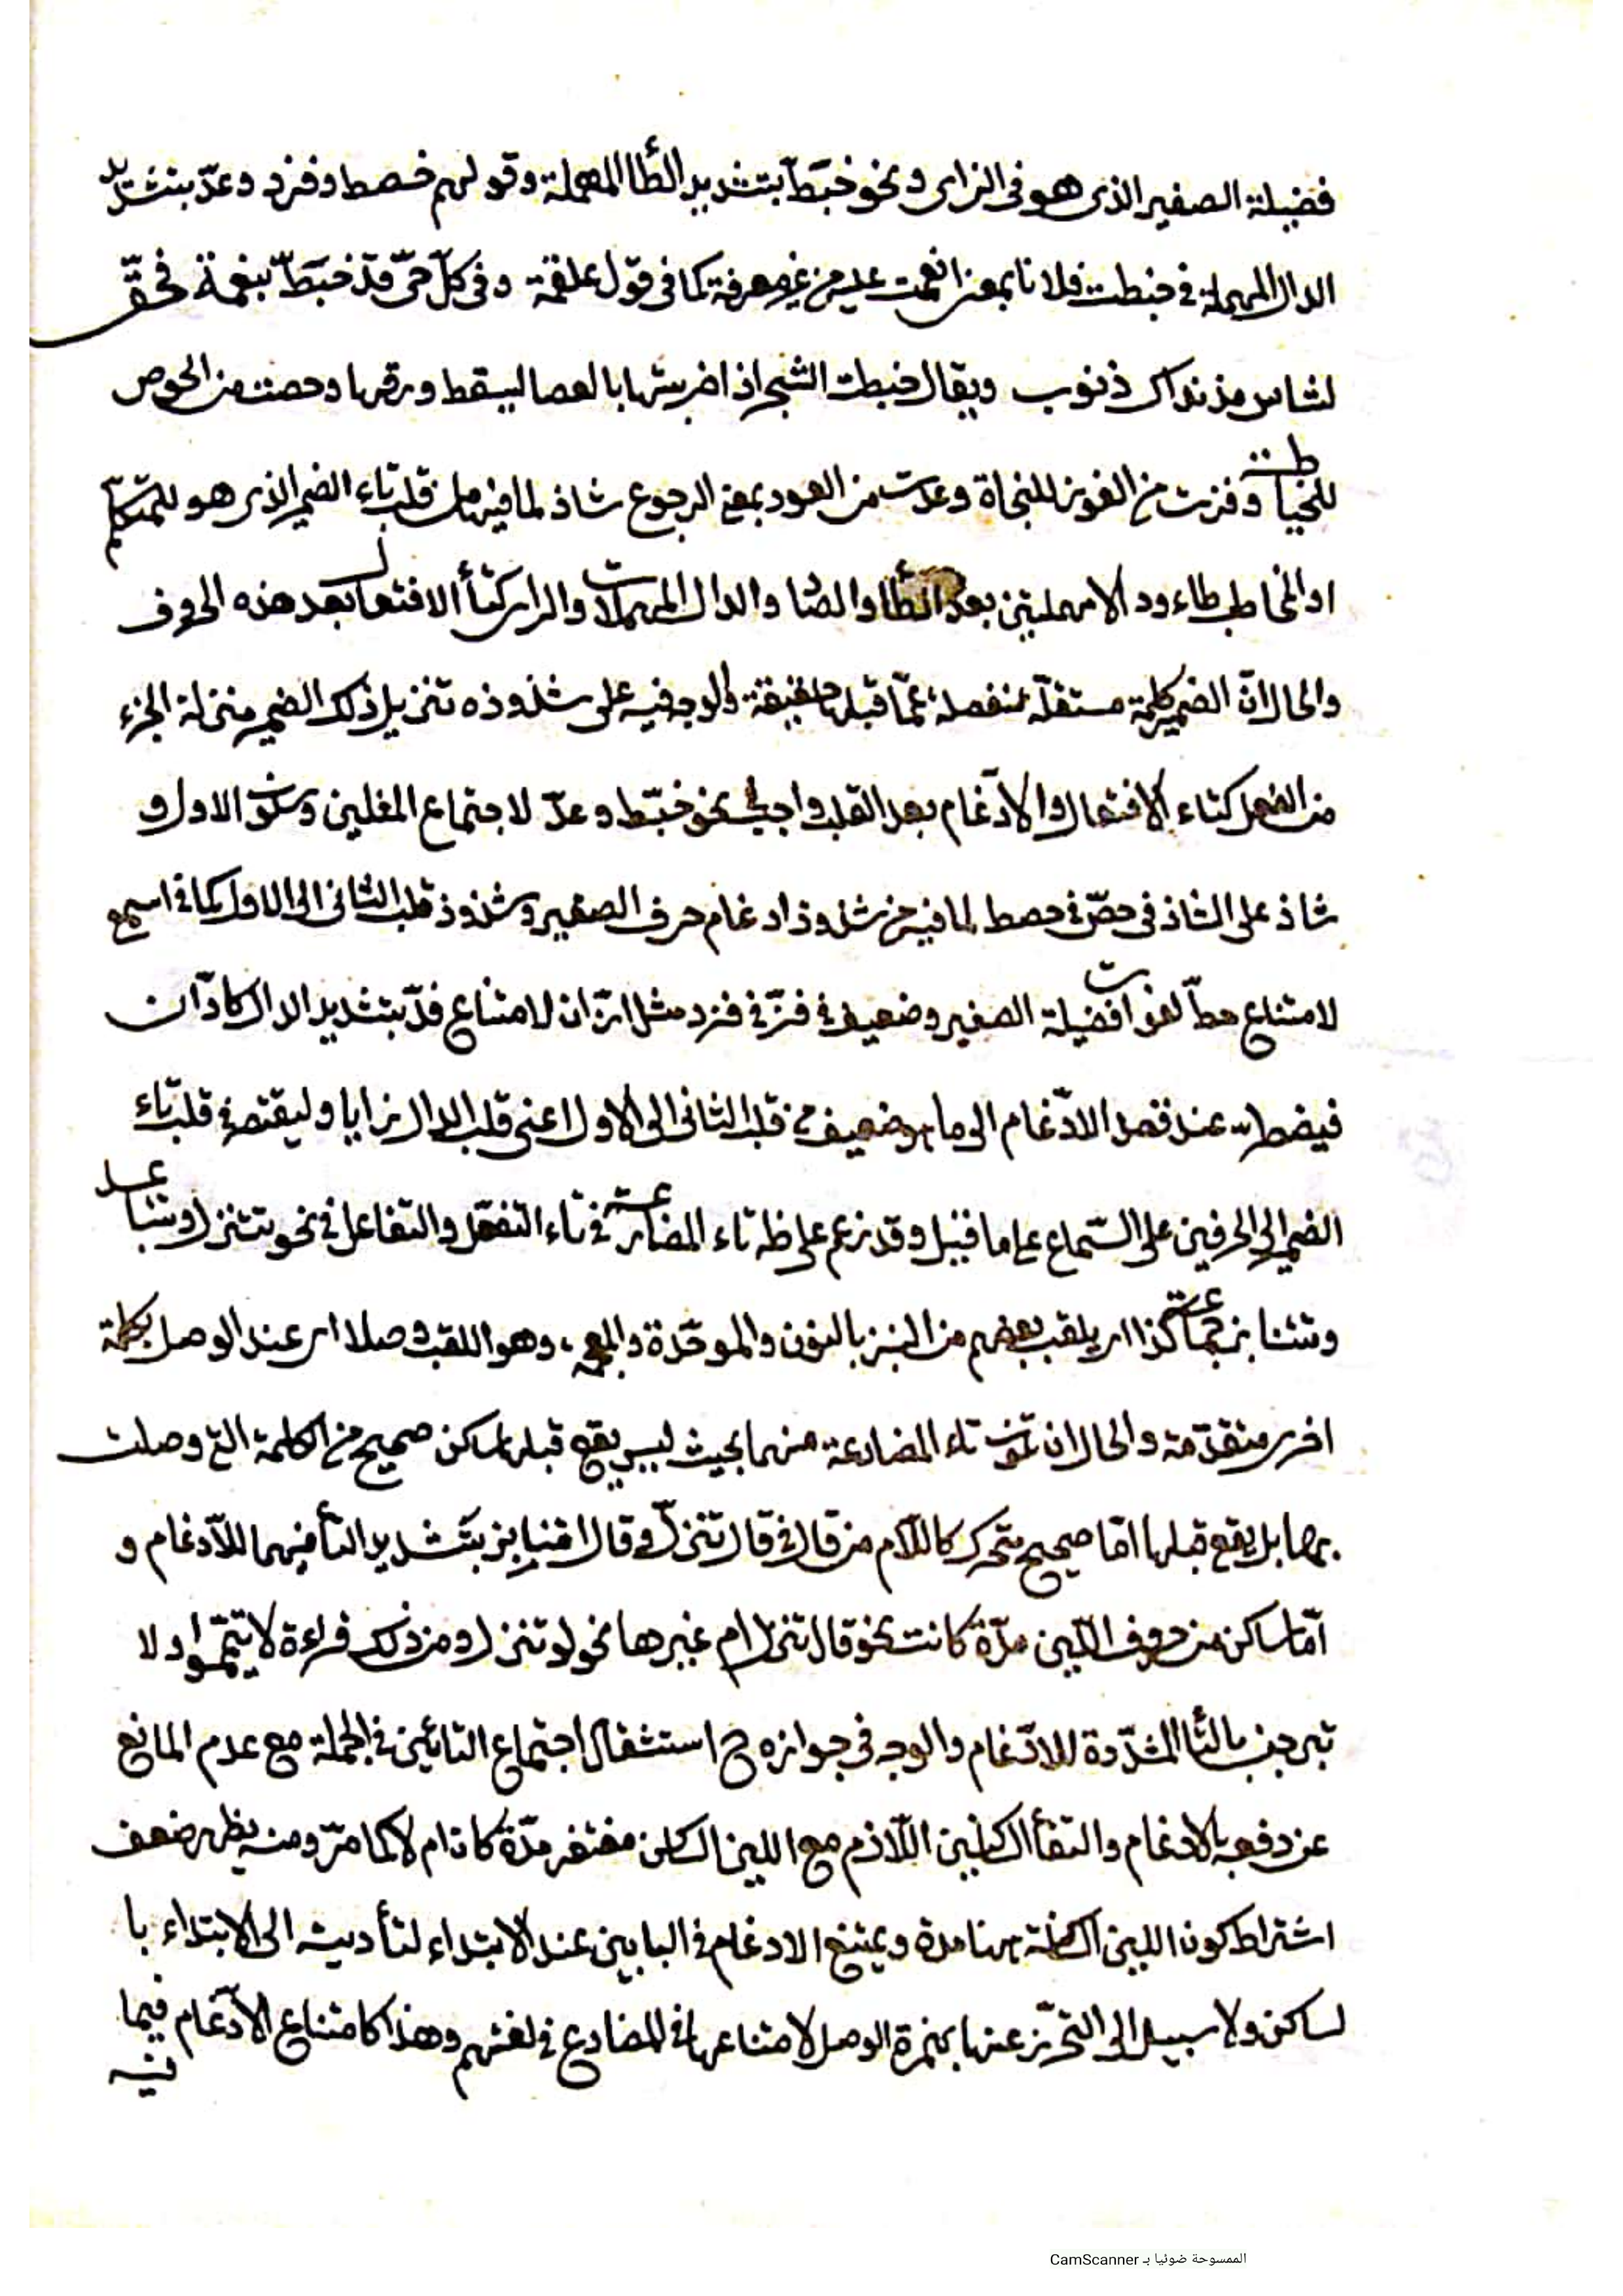 فضيلة الصفير الذى هو فى الزاى ونحو خبَطّ بتشديد الطّأ المهملة وقولهم خصط وفزد وعدّ بتشديد
الدال المهملة فى خبطت فلانا بمعنى انعمت عليه من غير معرفة كما فى قول علقمة وفى كلّ حىّ قد خبَطّ بنعمة فحقّ
لشاس من نداك ذنوب ويقال خبطت الشجر اذا ضربتها بالعصا ليسقط ورقها وحصت من الحوص
للخياطة وفزت من الفوز للنجاة وعدت من العود بمعنى الرجوع شاذ لما فيه من قلب تاء الضمير الذى هو للمتكلّم
او المخاطب طاء ودالا مهملتين بعد الطأ والصاد والدال المهملات والزاى كتأ الافتعال بعد هذه الحروف
والحال انّ الضمير كلمة مستقلّة منفصلة عمّا قبلها حقيقة والوجه فيه على شذوذه تنزيل ذلك الضمير منزلة الجزء
من الفعل كتاء الافتعال والادغام بعد القلب واجب فى نحو خبّط وعدّ لاجتماع المثلين وسكون الاول و
شاذ على الشاذ فى حصّ فى حصط لما فيه من شذوذ ادغام حرف الصفير وشذوذ قلب الثانى الى الاول كما فى اسمع
لامتناع حطّ لفوات فضيلة الصفير وضعيف فى فزّ فى فزد مثل ازّان لامتناع فدّ بتشديد الدال كادّان
فيضطر عند قصد الادّغام الى ما هو ضعيف من قلب الثانى الى الاول اعنى قلب الدال زايا وليقتصر فى قلب تاء
الضمير الى الحرفين على السّماع على ما قيل وقد تدغم على تاء المضارعة فى تاء التفعّل والتفاعل فى نحو تتنزل وتتباعد
وتتنابز جماعة كذا اى يلقب بعضهم من النبز بالنون والموحّدة والمعجمة وهو اللقب وصلا اى عند الوصل بكلمة
اخرى متقدّمة والحال ان تكون تاء المضارعة منهما بحيث ليس يقع قبلها ساكن صحيح من الكلمة التى وصلت
بها بل يقع قبلها امّا صحيح متحرك كاللّام من قال فى قال تنزل وقال اتنابز بتشديد التأ فيهما للادّغام و
امّا ساكن من حروف اللّين مدّة كانت نحو قالا تنزل ام غيرها نحو لو تنزل ومن ذلك قراءة لا تيمّموا ولا
تبرجن بالتّأ المشدّدة للادّغام والوجه فى جوازه ح استثقال اجتماع التائين فى الجملة مع عدم المانع
عن دفعه بالادغام والتقأ الساكنين اللّازم مع اللين الساكن مغتفر مدّة كان ام لا كما مرّ ومنه يظهر ضعف
اشتراط كون اللين الساكنة هنا مدة ويمتنع الادغام فى البابين عند الابتداء لتأديته الى الابتداء با
لساكن ولا سبيل الى التحرّز عنها بهمزة الوصل لامتناعها فى المضارع فى لغتهم وهذا كامتناع الادّغام فيما
فيه
الممسوحة ضوئيا بـ CamScanner